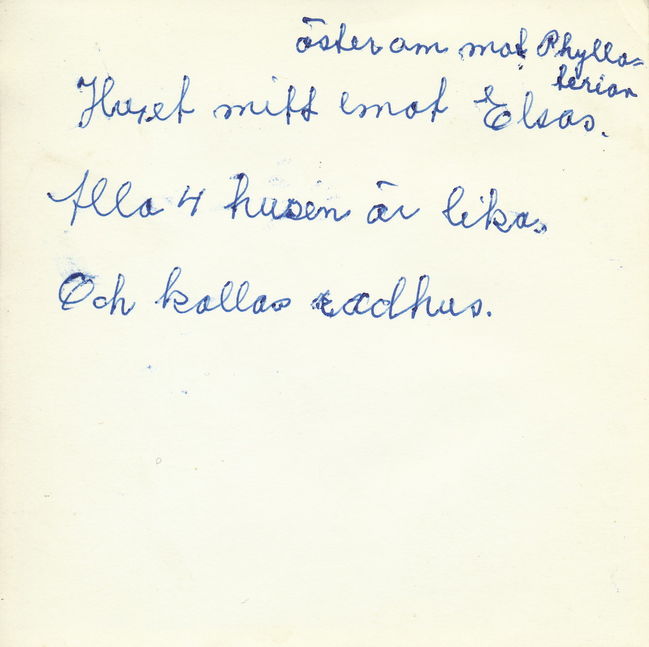 österom mot Phylla=
terian
Huset mitt emot Elsas.
Alla 4 husen är lika.
Och kallas radhus.